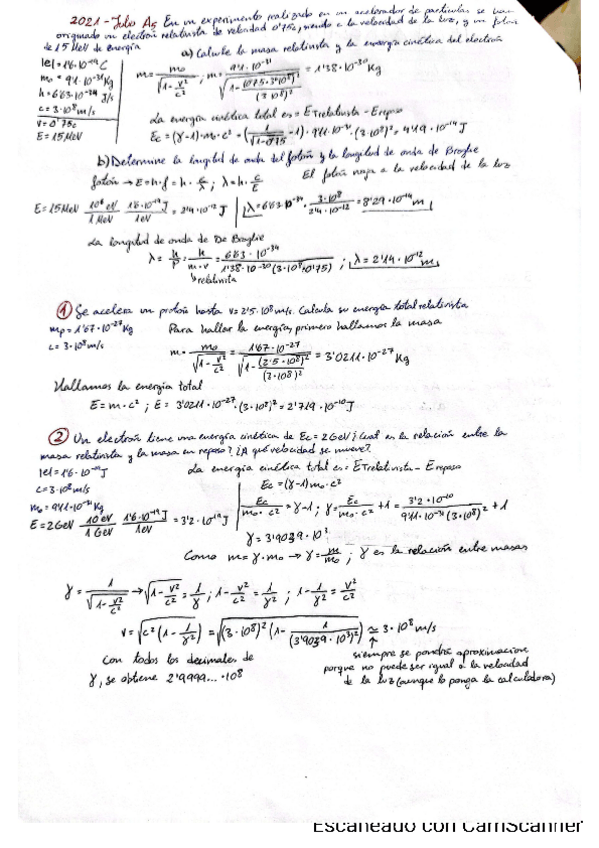 2021 - Julio A5 En un experimento realizado en un acelerador de partículas se han
originado un electrón relativista de velocidad 0'75c, siendo c la velocidad de la luz, y un fotón
de 15 MeV de energía
a) Calcule la masa relativista y la energía cinética del electrón
|e| = 1'6·10⁻¹⁹ C
m₀ = 9'1·10⁻³¹ Kg
h = 6'63·10⁻³⁴ J/s
c = 3·10⁸ m/s
v = 0'75c
E = 15 MeV
m = m₀ / √(1 - v²/c²) ; m = 9'1·10⁻³¹ / √(1 - (0'75·3·10⁸)² / (3·10⁸)²) = 1'38·10⁻³⁰ Kg
La energía cinética total es = E Relativista - E reposo
Ec = (γ-1)·m₀·c² = (1/√(1-0'75) - 1)·9'11·10⁻³¹·(3·10⁸)² = 4'19·10⁻¹⁴ J
b) Determine la longitud de onda del fotón y la longitud de onda de Broglie
fotón → E = h·f = h·c/λ ; λ = h·c/E
El fotón viaja a la velocidad de la luz
E = 15 MeV · 10⁶ eV / 1 MeV · 1'6·10⁻¹⁹ J / 1 eV = 2'4·10⁻¹² J | λ = 6'63·10⁻³⁴ · 3·10⁸ / 2'4·10⁻¹² = 8'29·10⁻¹⁴ m
La longitud de onda de De Broglie
λ = h/p = h / m·v = 6'63·10⁻³⁴ / 1'38·10⁻³⁰ (3·10⁸·0'75) ; λ = 2'14·10⁻¹² m
↳ relativista
① Se acelera un protón hasta v = 2'5·10⁸ m/s. Calcula su energía total relativista
mp = 1'67·10⁻²⁷ Kg
c = 3·10⁸ m/s
Para hallar la energía, primero hallamos la masa
m = m₀ / √(1 - v²/c²) = 1'67·10⁻²⁷ / √(1 - (2'5·10⁸)² / (3·10⁸)²) = 3'0211·10⁻²⁷ Kg
Hallamos la energía total
E = m·c² ; E = 3'0211·10⁻²⁷·(3·10⁸)² = 2'719·10⁻¹⁰ J
② Un electrón tiene una energía cinética de Ec = 2 GeV ¿Cual es la relación entre la
masa relativista y la masa en reposo? ¿A qué velocidad se mueve?
|e| = 1'6·10⁻¹⁹ J
c = 3·10⁸ m/s
m₀ = 9'11·10⁻³¹ Kg
E = 2 GeV · 10⁹ eV / 1 GeV · 1'6·10⁻¹⁹ J / 1 eV = 3'2·10⁻¹⁰ J
La energía cinética total es = E Relativista - E reposo
Ec = (γ-1) m₀·c²
Ec / m₀·c² = γ - 1 ; γ = Ec / m₀·c² + 1 = 3'2·10⁻¹⁰ / 9'11·10⁻³¹ (3·10⁸)² + 1
γ = 3'9039·10³
Como m = γ·m₀ → γ = m/m₀ ; γ es la relación entre masas
γ = 1 / √(1 - v²/c²) → √(1 - v²/c²) = 1/γ ; 1 - v²/c² = 1/γ² ; 1 - 1/γ² = v²/c²
v = √(c² (1 - 1/γ²)) = √((3·10⁸)² (1 - 1/(3'9039·10³)²)) ≃ 3·10⁸ m/s
Con todos los decimales de
γ, se obtiene 2'9999...·10⁸
siempre se pondrá aproximacione
porque no puede ser igual a la velocidad
de la luz (aunque lo ponga la calculadora)
Escaneado con CamScanner